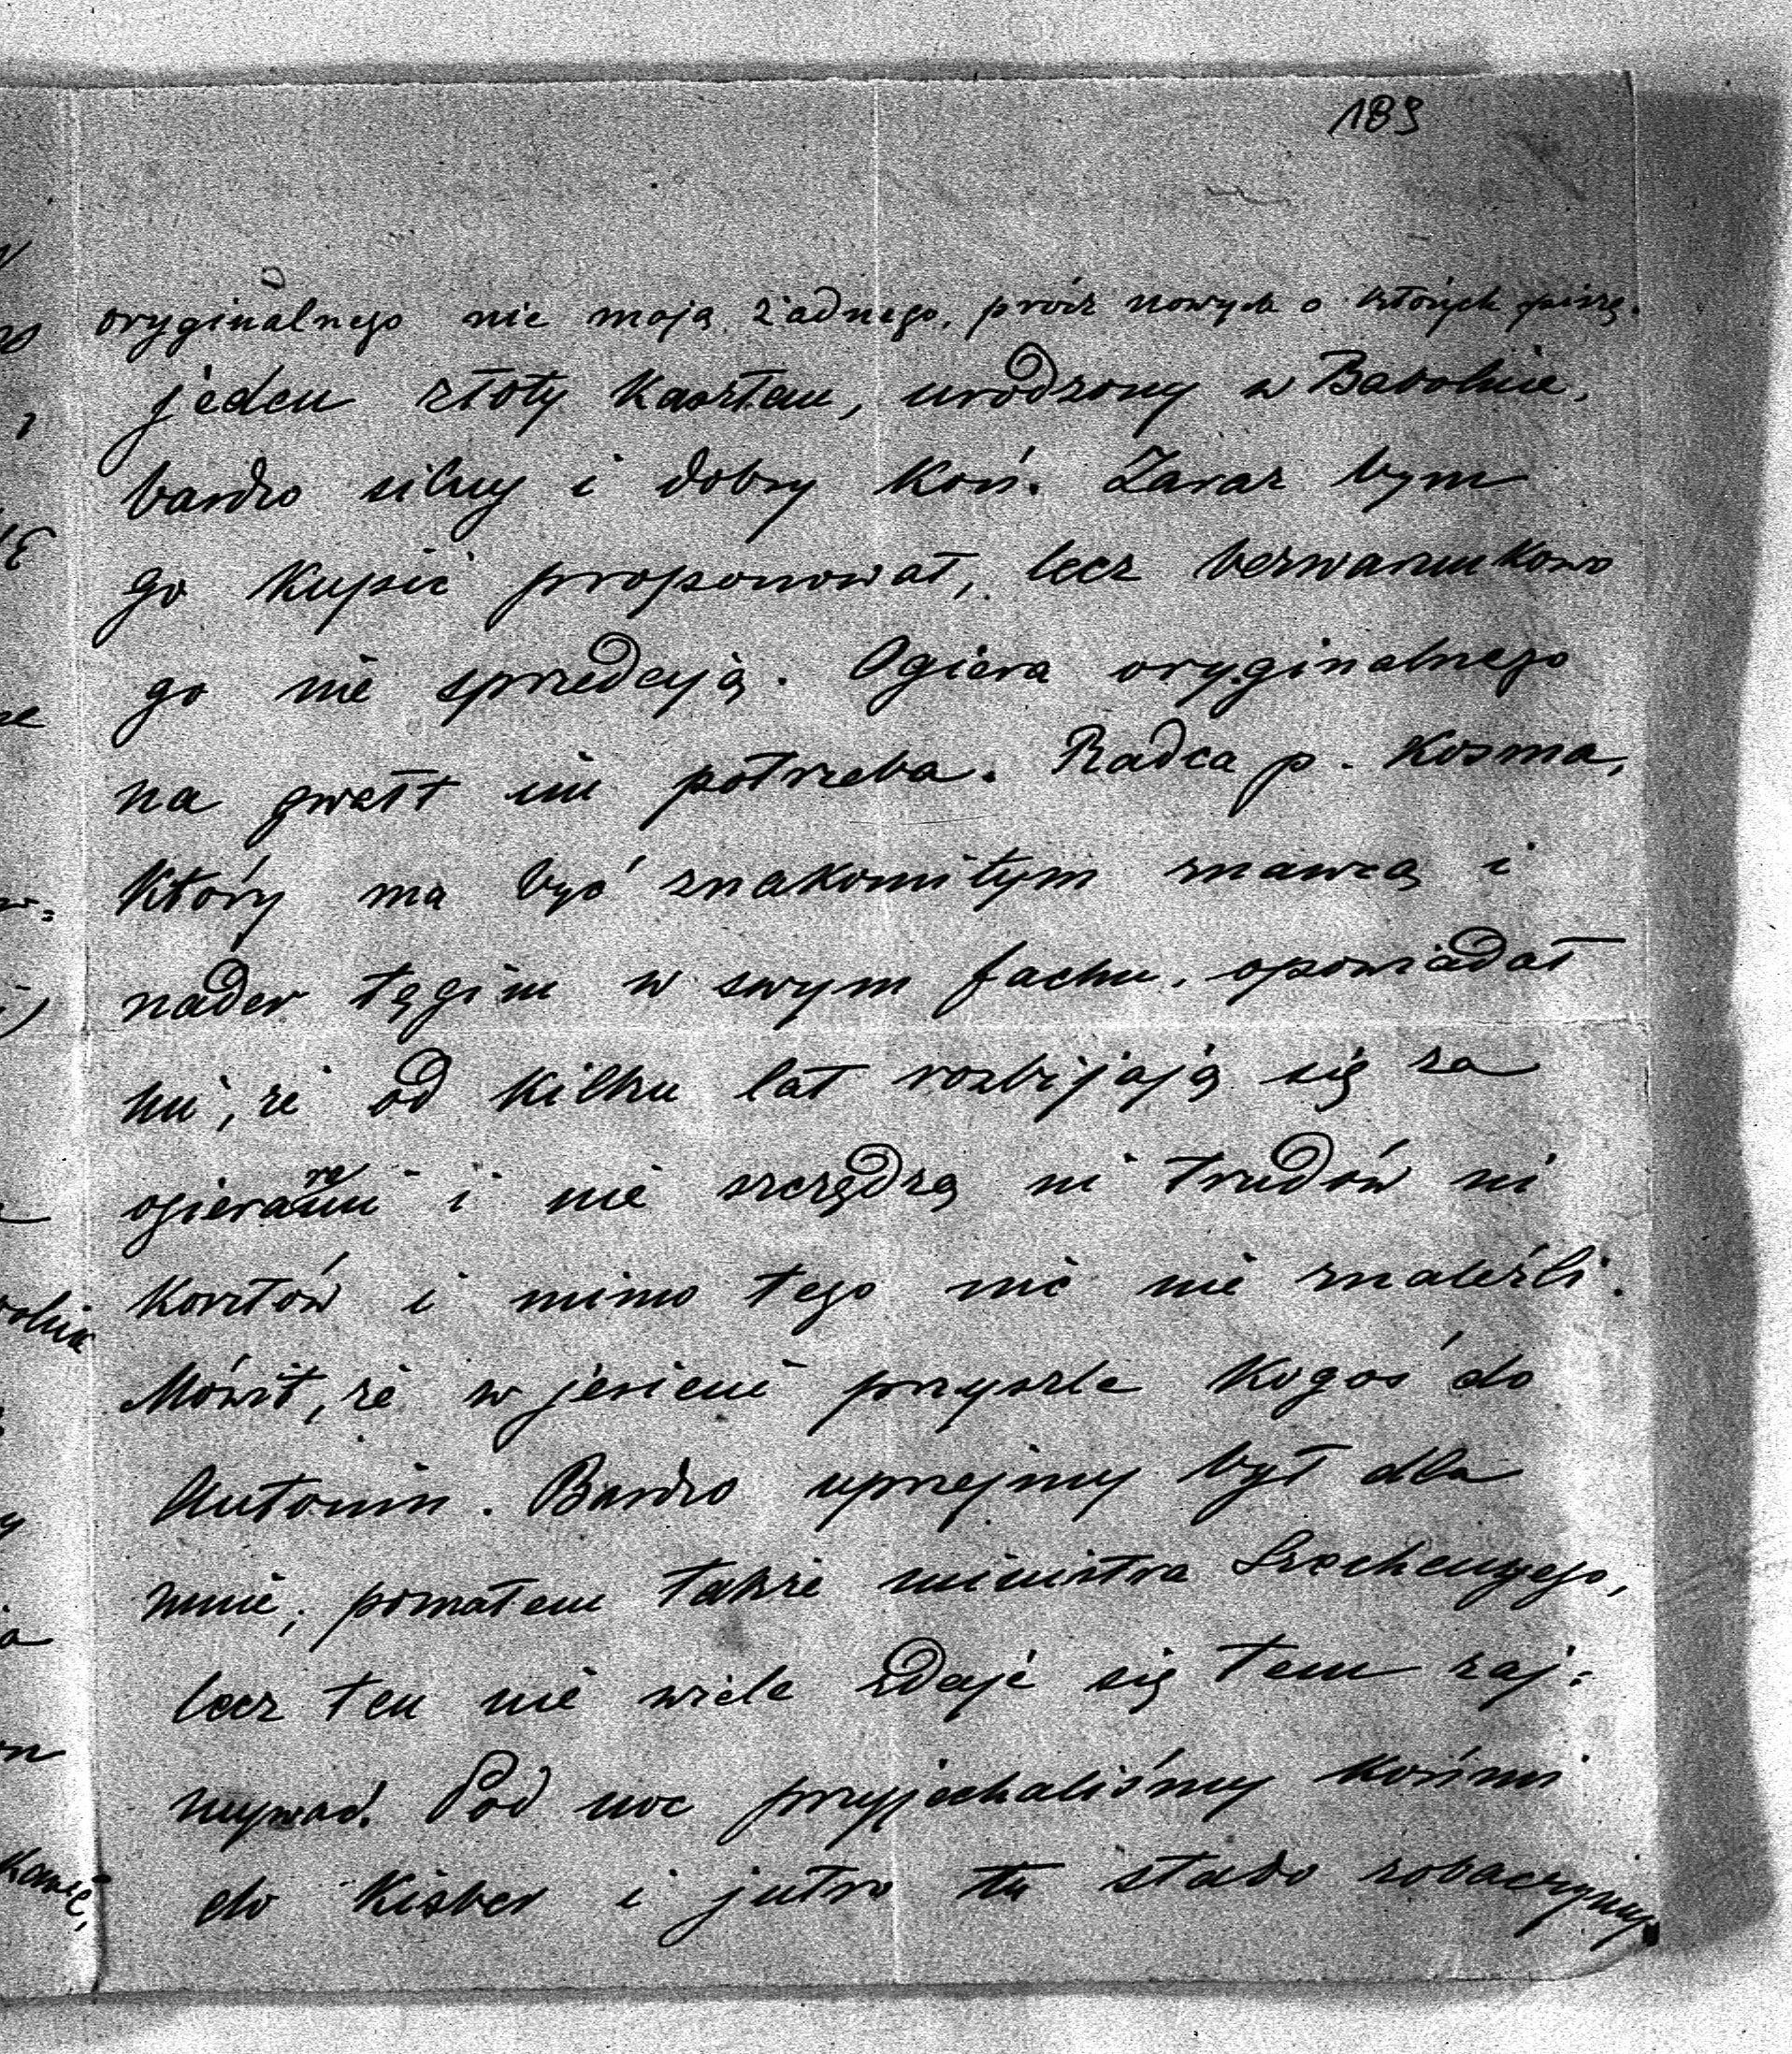 189
oryginalnego nie mają żadnego, prócz nowych o których piszę.
jeden złoty kasztan, urodzony w Babolnie,
bardzo silny i dobry koń. Zaraz bym
go kupić proponował, lecz bezwarunkowo
go nie sprzedają. Ogiera oryginalnego
na gwałt im potrzeba. Radca p. Kozma,
który ma być znakomitym znawcą i
nader tęgim w swym fachu, opowiadał
mi, że od kilku lat rozbijają się za
ogierami i nie szczędzą ni trudów ni
kosztów i mimo tego nic nie znaleźli.
Mówił, że w jesieni przyszle kogoś do
Antonin. Bardzo uprzejmy był dla
mnie; poznałem także ministra Szechenyego,
lecz ten nie wiele zdaje się tem zaj=
mywać. Pod noc przyjechaliśmy końmi
do Kisber i jutro tu stado zobaczymy.